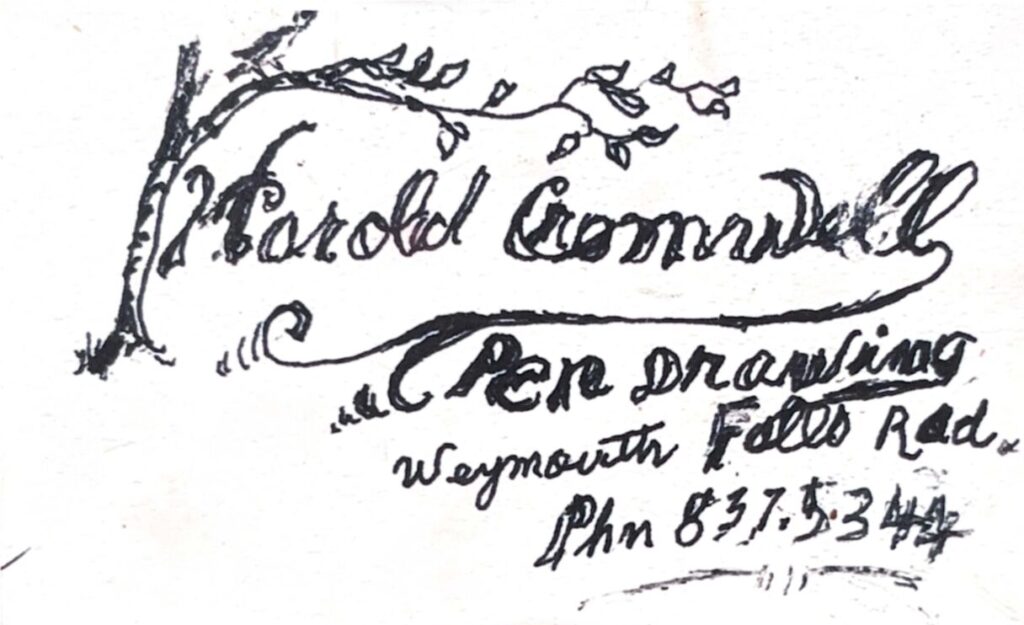 Harold Cromwell
Pen Drawing
Weymouth Falls Rad.
Phn 837.5344